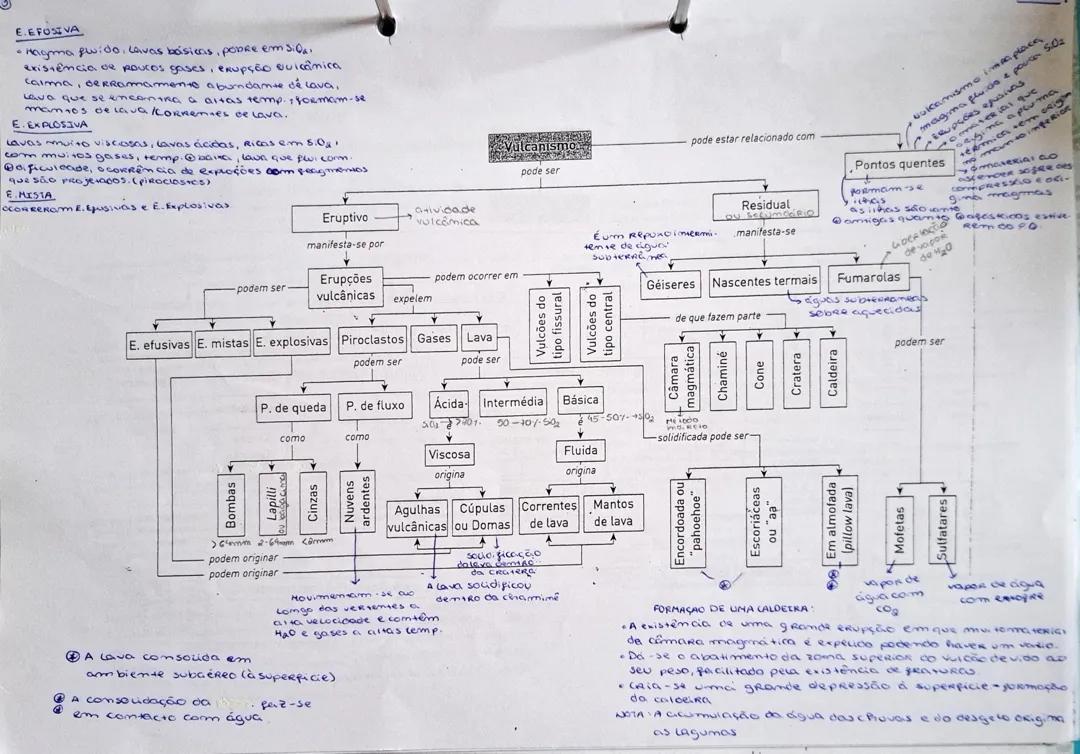 E. EFUSIVA
• Magma fluido, lavas básicas, pobre em SiO₂,
existência de poucos gases, erupção vulcânica
calma, derramamento abundante de lava,
lava que se encontra a altas temp., formam-se
mantos de lava/correntes de lava.
E. EXPLOSIVA
Lavas muito viscosas, lavas ácidas, ricas em SiO₂,
com muitos gases, temp. ⊕ baixa, lava que flui com
⊕ dificuldade, ocorrência de explosões com fragmentos
que são projetados. (piroclastos)
E. MISTA
ocorreram E. Efusivas e E. Explosivas
Vulcanismo
pode ser
pode estar relacionado com
Pontos quentes
vulcanismo intraplaca
magma fluido e pouca SiO₂
erupções efusivas
o material que
origina a pluma
térmica tem origem
no manto inferior
o material ao
ascender sofre des
compressão e ori-
gina magmas
formam-se
ilhas
as ilhas são tanto
⊕ antigas quanto ⊕ afastadas estive-
rem do P.Q.
Eruptivo
atividade
vulcânica
Residual
ou secundário
manifesta-se por
manifesta-se
É um repuxo intermi-
tente de água
subterrânea
Géiseres
Nascentes termais
Fumarolas
libertação
de vapor
de H₂O
águas subterrâneas
sobre aquecidas
Erupções
vulcânicas
podem ser
podem ocorrer em
expelem
Vulcões do
tipo fissural
Vulcões do
tipo central
de que fazem parte
podem ser
E. efusivas
E. mistas
E. explosivas
Piroclastos
Gases
Lava
podem ser
pode ser
Câmara
magmática
Chaminé
Cone
Cratera
Caldeira
P. de queda
P. de fluxo
Ácida
Intermédia
Básica
50-70% SiO₂
é 45-50% → SiO₂
como
como
Viscosa
Fluida
solidificada pode ser
origina
origina
Bombas
Lapilli
ou bagacina
Cinzas
Nuvens
ardentes
Agulhas
vulcânicas
Cúpulas
ou Domas
Correntes
de lava
Mantos
de lava
Encordoada ou
"pahoehoe"
Escoriáceas
ou "aa"
Em almofada
(pillow lava)
Mofetas
Sulfatares
>64mm 2-64mm <2mm
podem originar
podem originar
solidificação
da lava dentro
da cratera
A lava solidificou
dentro da chaminé
Movimentam-se ao
longo das vertentes a
alta velocidade e contêm
H₂O e gases a altas temp.
vapor de
água com
CO₂
vapor de água
com enxofre
FORMAÇÃO DE UMA CALDEIRA:
• A existência de uma grande erupção em que muito material
da câmara magmática é expelido podendo haver um vazio.
• Dá-se o abatimento da zona superior do vulcão devido ao
seu peso, facilitado pela existência de fraturas.
• Cria-se uma grande depressão à superfície - formação
da caldeira
NOTA: A acumulação da água das chuvas e do desgelo origina
as lagunas
A lava consolida em
ambiente subaéreo (à superfície)
A consolidação da fez-se
em contacto com água.